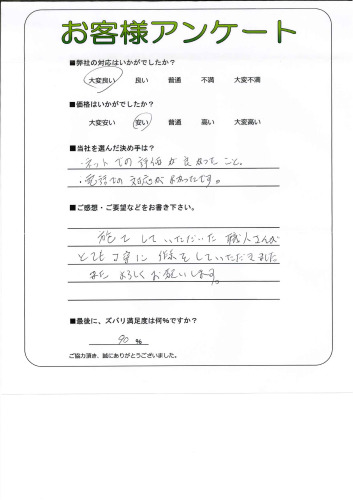 お客様アンケート
■弊社の対応はいかがでしたか?
大変良い 良い 普通 不満 大変不満
■価格はいかがでしたか?
大変安い 安い 普通 高い 大変高い
■当社を選んだ決め手は?
・ネットでの評価が良かったこと。
・電話での対応がよかったです。
■ご感想・ご要望などをお書き下さい。
施工していただいた職人さんが
とても丁寧に作業をしていただきました
またよろしくお願いします。
■最後に、ズバリ満足度は何%ですか?
90 %
ご協力頂き、誠にありがとうございました。